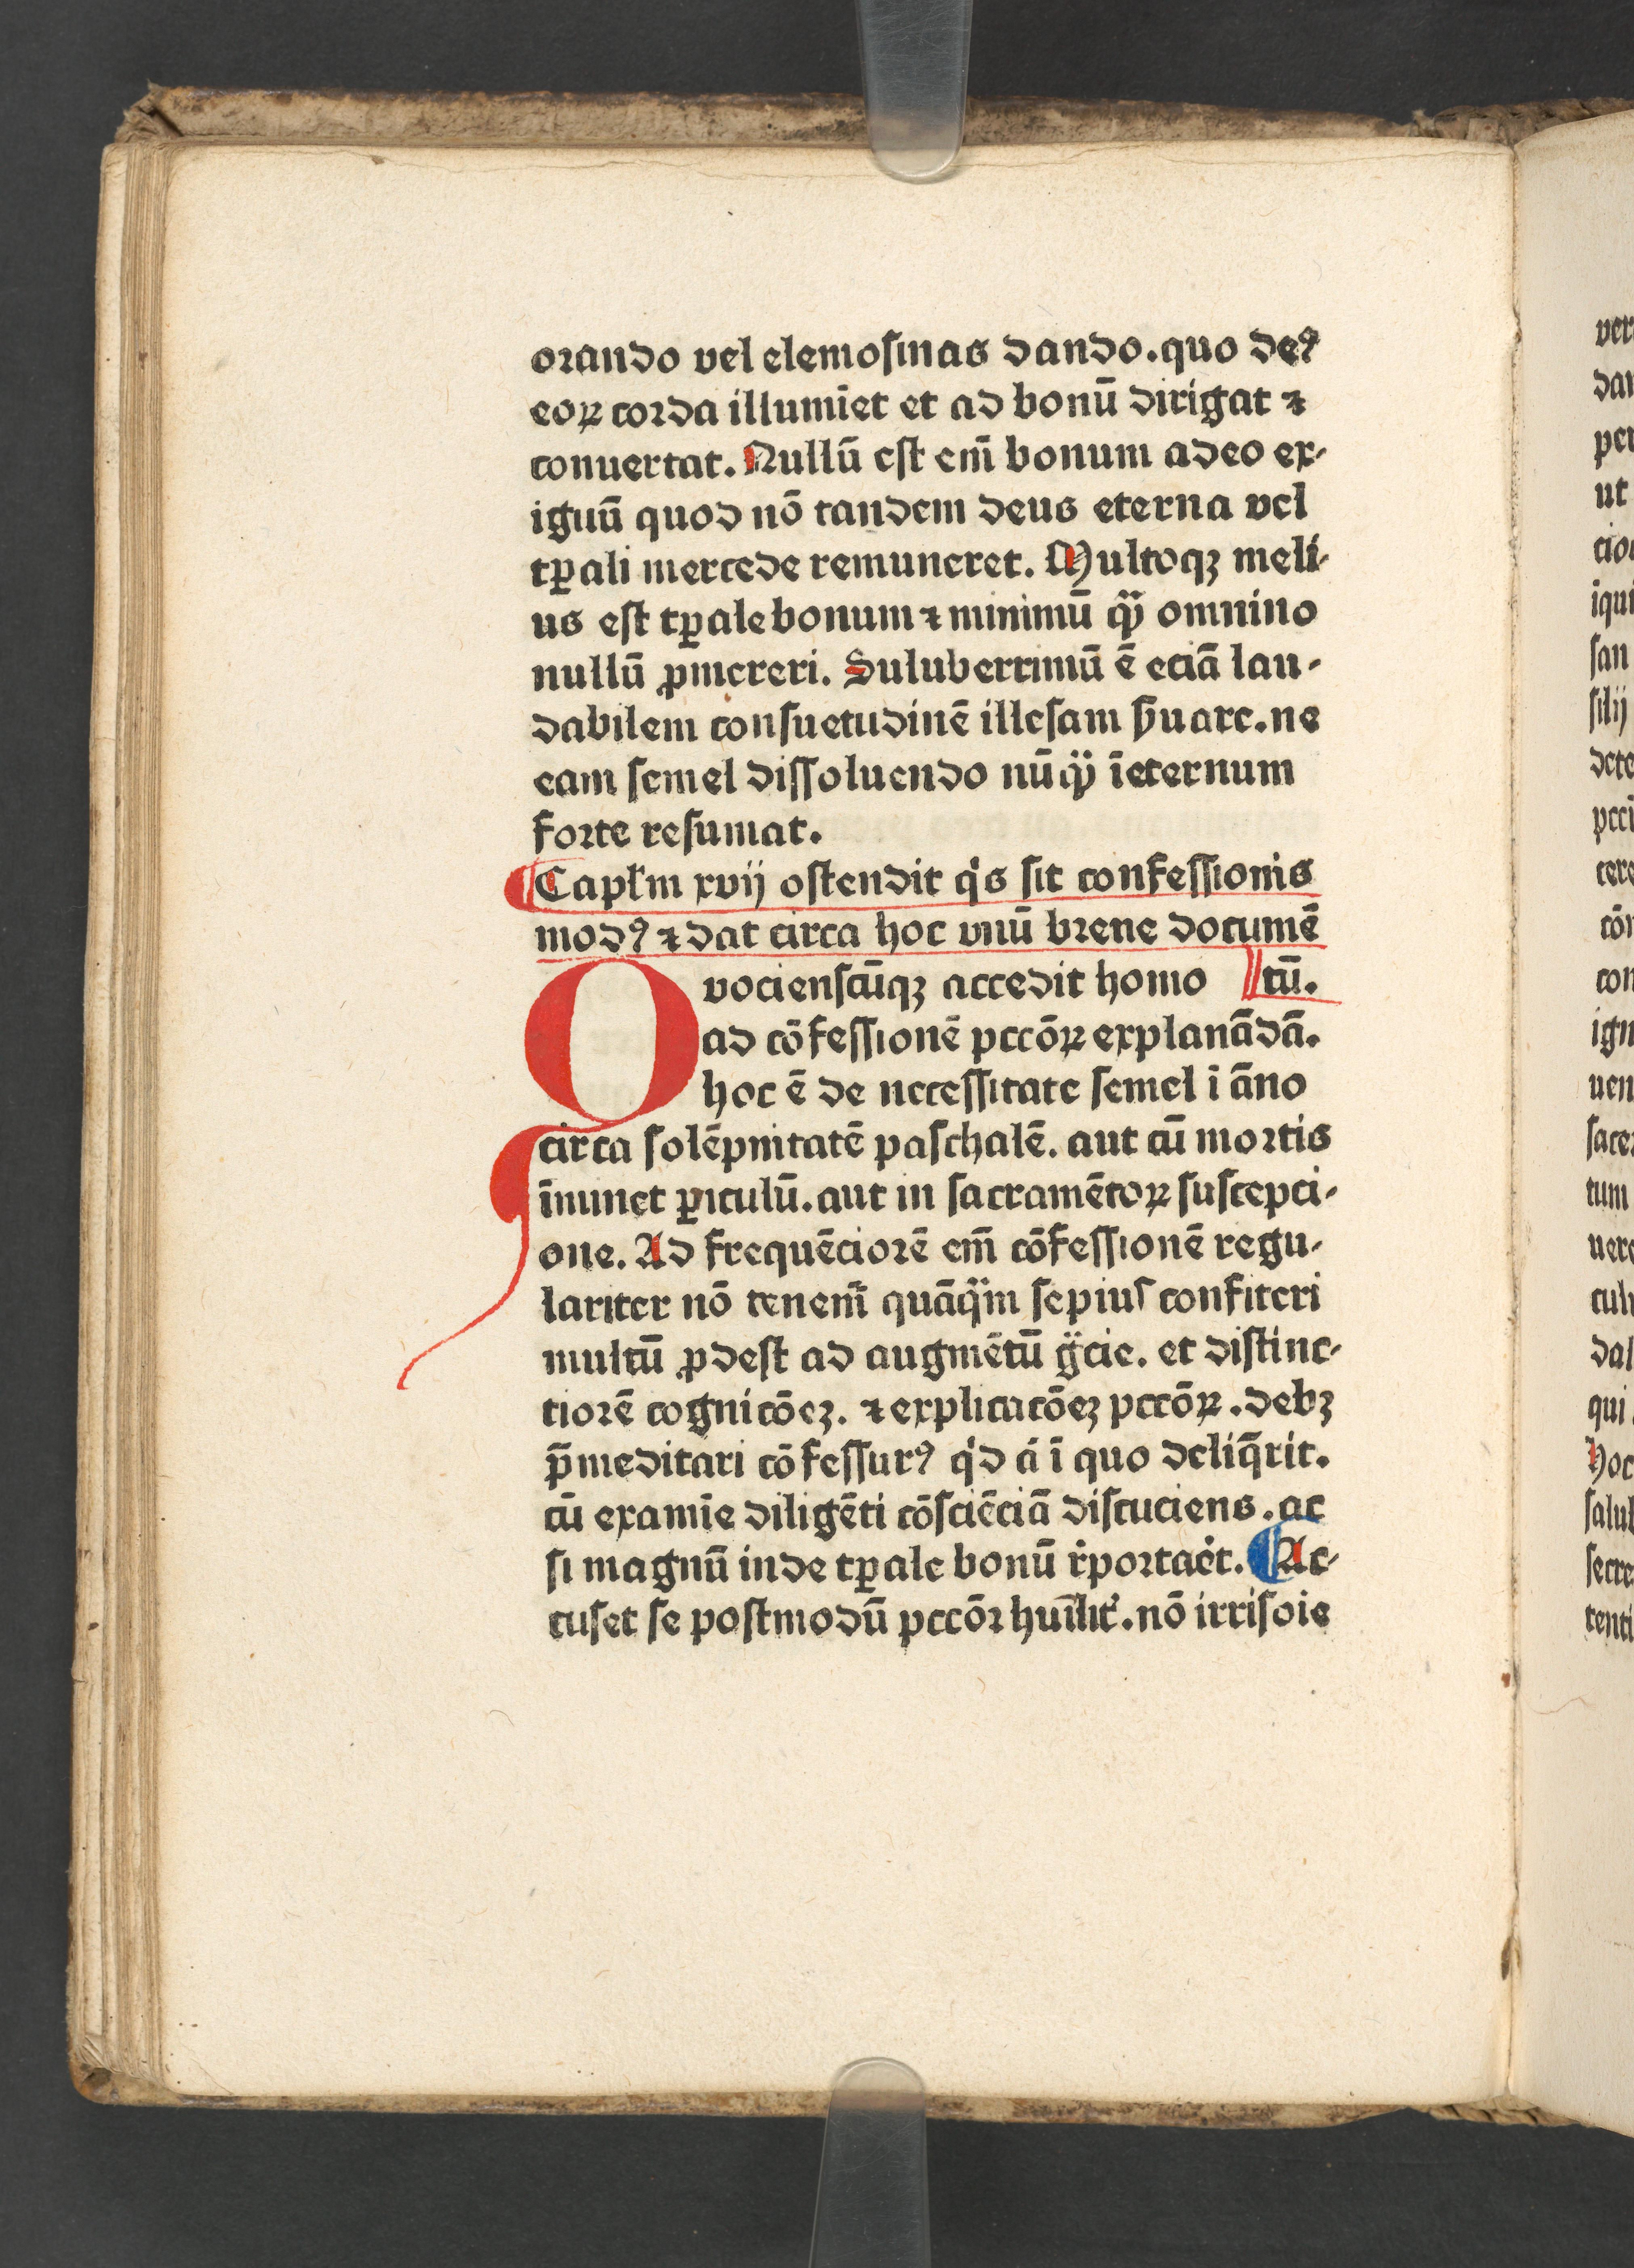 orando vel elemosinas dando. quo deꝰ
eoꝝ corda illumīet et ad bonū dirigat ⁊
conuertat. Nullū est em̄ bonum adeo ex-
iguū quod nō tandem deus eterna vel
tꝑali mercede remuneret. Multoqꝫ meli-
us est tꝑale bonum ⁊ minimū qͣ̄ omnino
nullū ꝓmereri. Suluberrimū ē eciā lau-
dabilem consuetudinē illesam ẜuare. ne
eam semel dissoluendo nūqͣ̄ īeternum
forte resumat.
Capłm xvij ostendit qͥs sit confessionis
modꝰ ⁊ dat circa hoc vnū breue documē
Qvociensciūqꝫ accedit homo tū.
ad cōfessionē pccōꝝ explanādā.
hoc ē de necessitate semel ī āno
circa solēpnitatē paschalē. aut cū mortis
īminet ꝑiculū. aut in sacramētoꝝ suscepci-
one. Ad frequēciorē em̄ cōfessionē regu-
lariter nō tenem̄ quāqͣ̄m sepius confiteri
multū ꝓdest ad augmētū gͣ̄cie. et distinc-
tiorē cognicōeꝫ. ⁊ explicacōeꝫ pccōꝝ. debꝫ
p̄meditari cōfessurꝰ qͥd ⁊ ī quo deliq̄rit.
cū examīe diligēti cōsciēciā discuciens. ac
si magnū inde tꝑale bonū r̄portaēt. Ac-
cuset se postmodū pccōꝛ huīlit᷑. nō irrisoie
ver
dan
per
ut
cio
iqui
san
silij
dete
pcci
cere
cōn
con
ign
uen
sacer
tum
uere
cul
dal
qui
Hoc
salub
secre
tenti